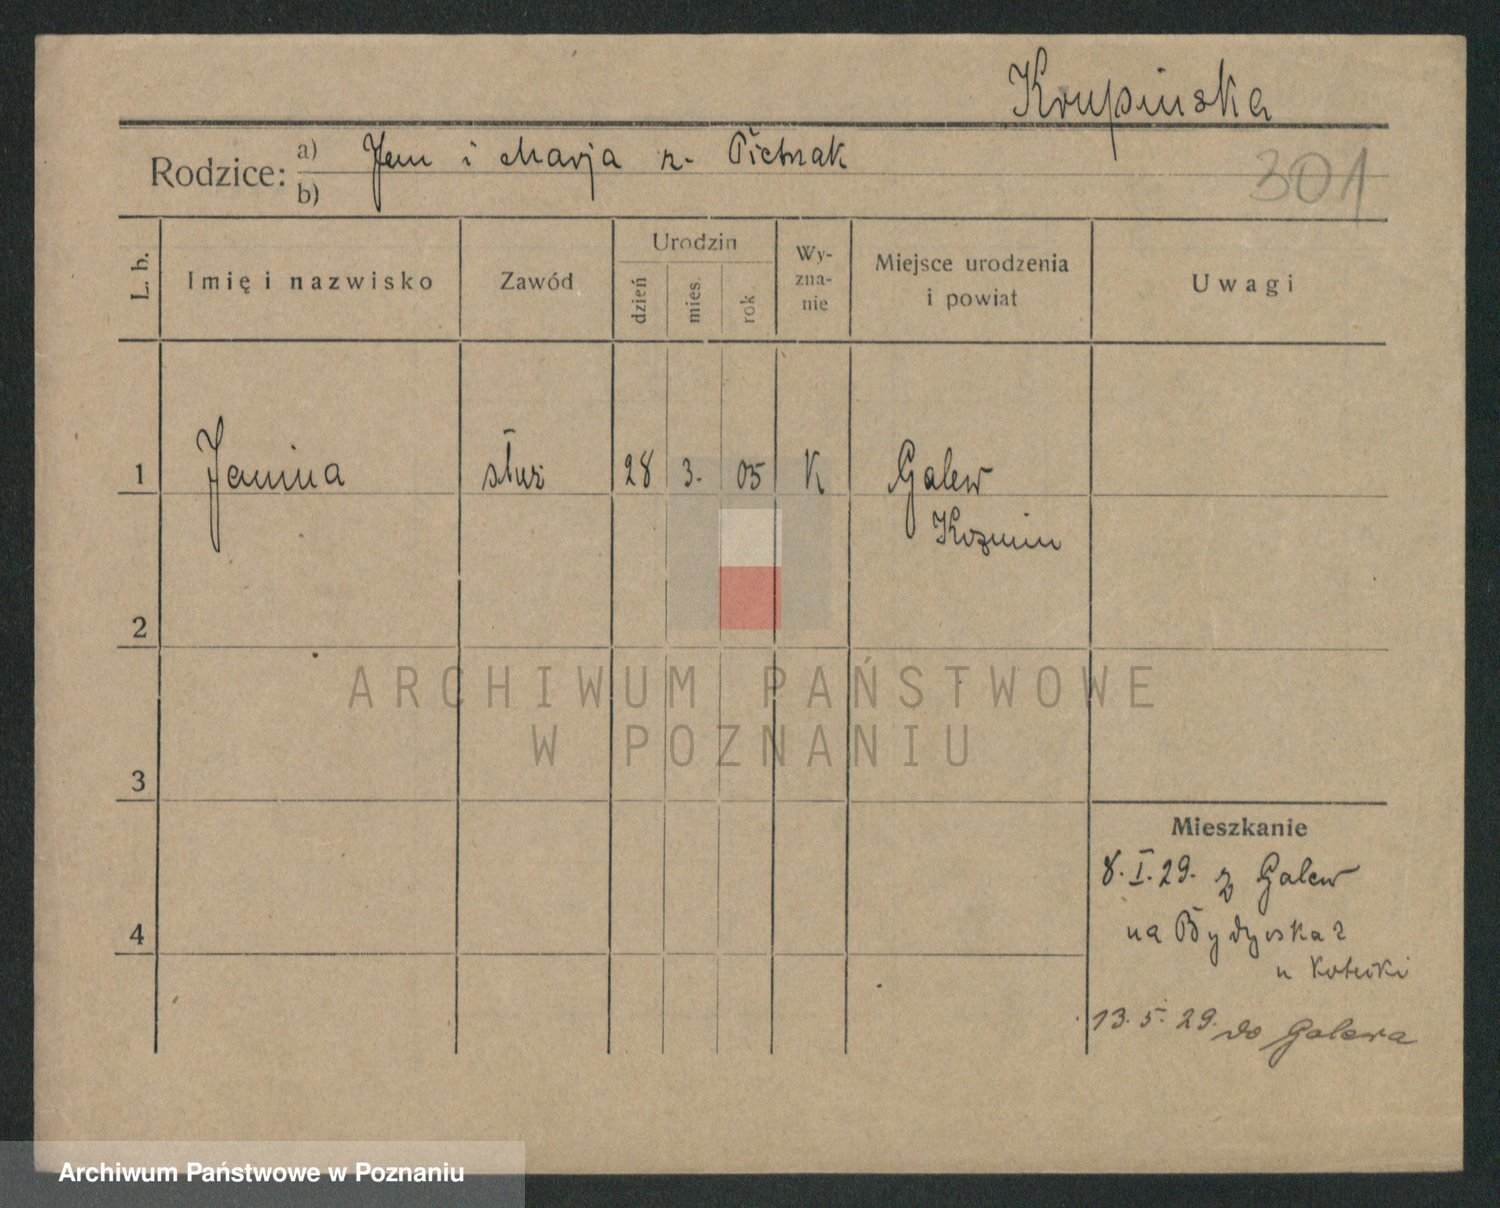 Krupińska
Rodzice: a) Jan i Marja z. Pietrzak
b)
301
L. b.
Imię i nazwisko
Zawód
Urodzin
dzień
mies.
rok
Wy-
zna-
nie
Miejsce urodzenia
i powiat
Uwagi
1 Janina służ 28 3. 05 K Galew
Kozmin
2
ARCHIWUM PAŃSTWOWE
W POZNANIU
3
Mieszkanie
8. I. 29. z Galew
na
4
u
13. 5. 29. do Galewa
Archiwum Państwowe w Poznaniu